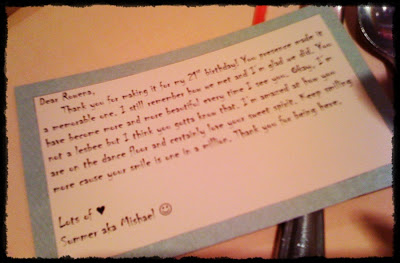 Dear Rowena,
Thank you for making it for my 21st birthday! You presence made it
a memorable one. I still remember how we met and I'm glad we did. You
have become more and more beautiful every time I see you. Okay, I'm
not a lesbee but I think you gotta know that. I'm amazed at how you
are on the dance floor and certainly love your sweet spirit. Keep smiling
more cause your smile is one in a million. Thank you for being here.
Lots of ♥
Summer aka Mishael ☺